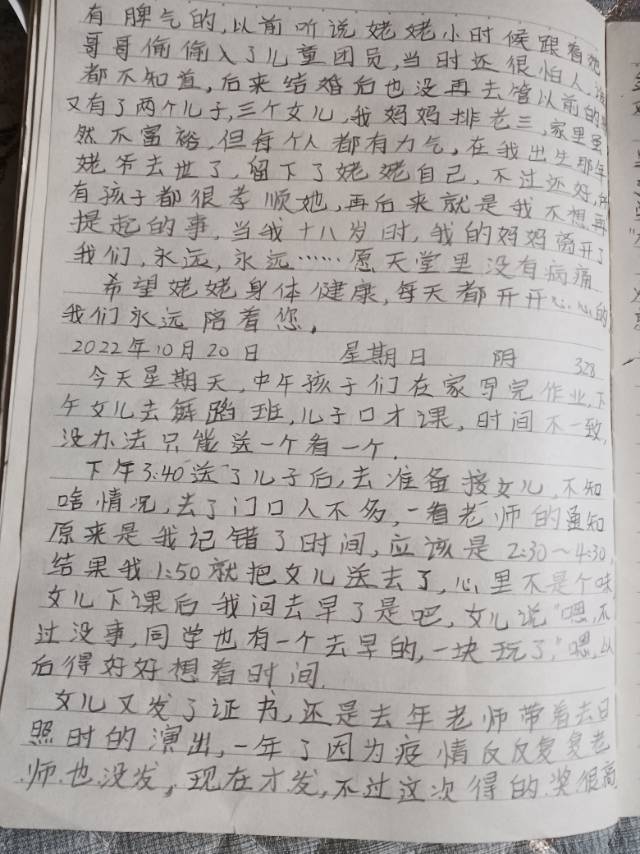 有脾气的,以前听说姥姥小时候跟着她
哥哥偷偷入了儿童团员,当时还很怕人,
都不知道,后来结婚后也没再去管以前的
又有了两个儿子,三个女儿,我妈妈排老三,家里虽
然不富裕,但每个人都有力气,在我出生那年
姥爷去世了,留下了姥姥自己,不过还好,所
有孩子都很孝顺她,再后来就是我不想再
提起的事,当我十八岁时,我的妈妈离开了
我们,永远,永远……愿天堂里没有病痛
希望姥姥身体健康,每天都开开心心的
我们永远陪着您。
2022年10月20日 星期日 阴 328
今天星期天,中午孩子们在家写完作业,下
午女儿去舞蹈班,儿子口才课,时间不一致,
没办法只能送一个看一个.
下午3:40送了儿子后,去准备接女儿,不知
啥情况,去了门口人不多,一看老师的通知
原来是我记错了时间,应该是2:30~4:30,
结果我1:50就把女儿送去了,心里不是个味
女儿下课后我问去早了是吧,女儿说"嗯,不
过没事,同学也有一个去早的,一块玩了,"嗯,以
后得好好想着时间.
女儿又发了证书,还是去年老师带着去日
照时的演出,一年了因为疫情反反复复老
师也没发,现在才发,不过这次得的奖很高